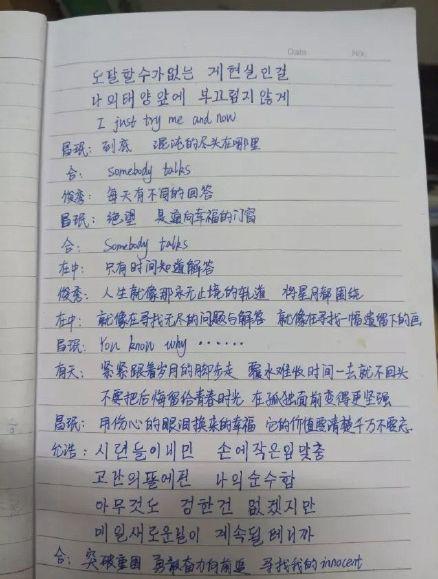 Date No:
도달할수가없는 게현실인걸
나의태양앞에 부끄럽지않게
I just try me and now
昌珉: 到底 混沌的尽头在哪里
合: Somebody talks
俊秀: 每天有不同的回答
昌珉: 绝望 是通向幸福的门窗
合: Somebody talks
在中: 只有时间知道解答
俊秀: 人生就像那永无止境的轨道 将星月都围绕
在中: 就像在寻找无尽的问题与解答 就像在寻找一幅遗留下的画
昌珉: You know why ······
有天: 紧紧跟着岁月的脚步走 覆水难收时间一去就不回头
不要把后悔留给青春时光 在孤独面前变得更坚强
昌珉: 用伤心的眼泪换来的幸福 它的价值要清楚千万不要忘
允浩: 시련들이내민 손에작은입맞춤
고난의품에전 나의순수함
아무것도 정한건 없겠지만
매일새로운길이 계속될테니까
合: 突破重围 勇敢奋力向前 寻找我的innocent